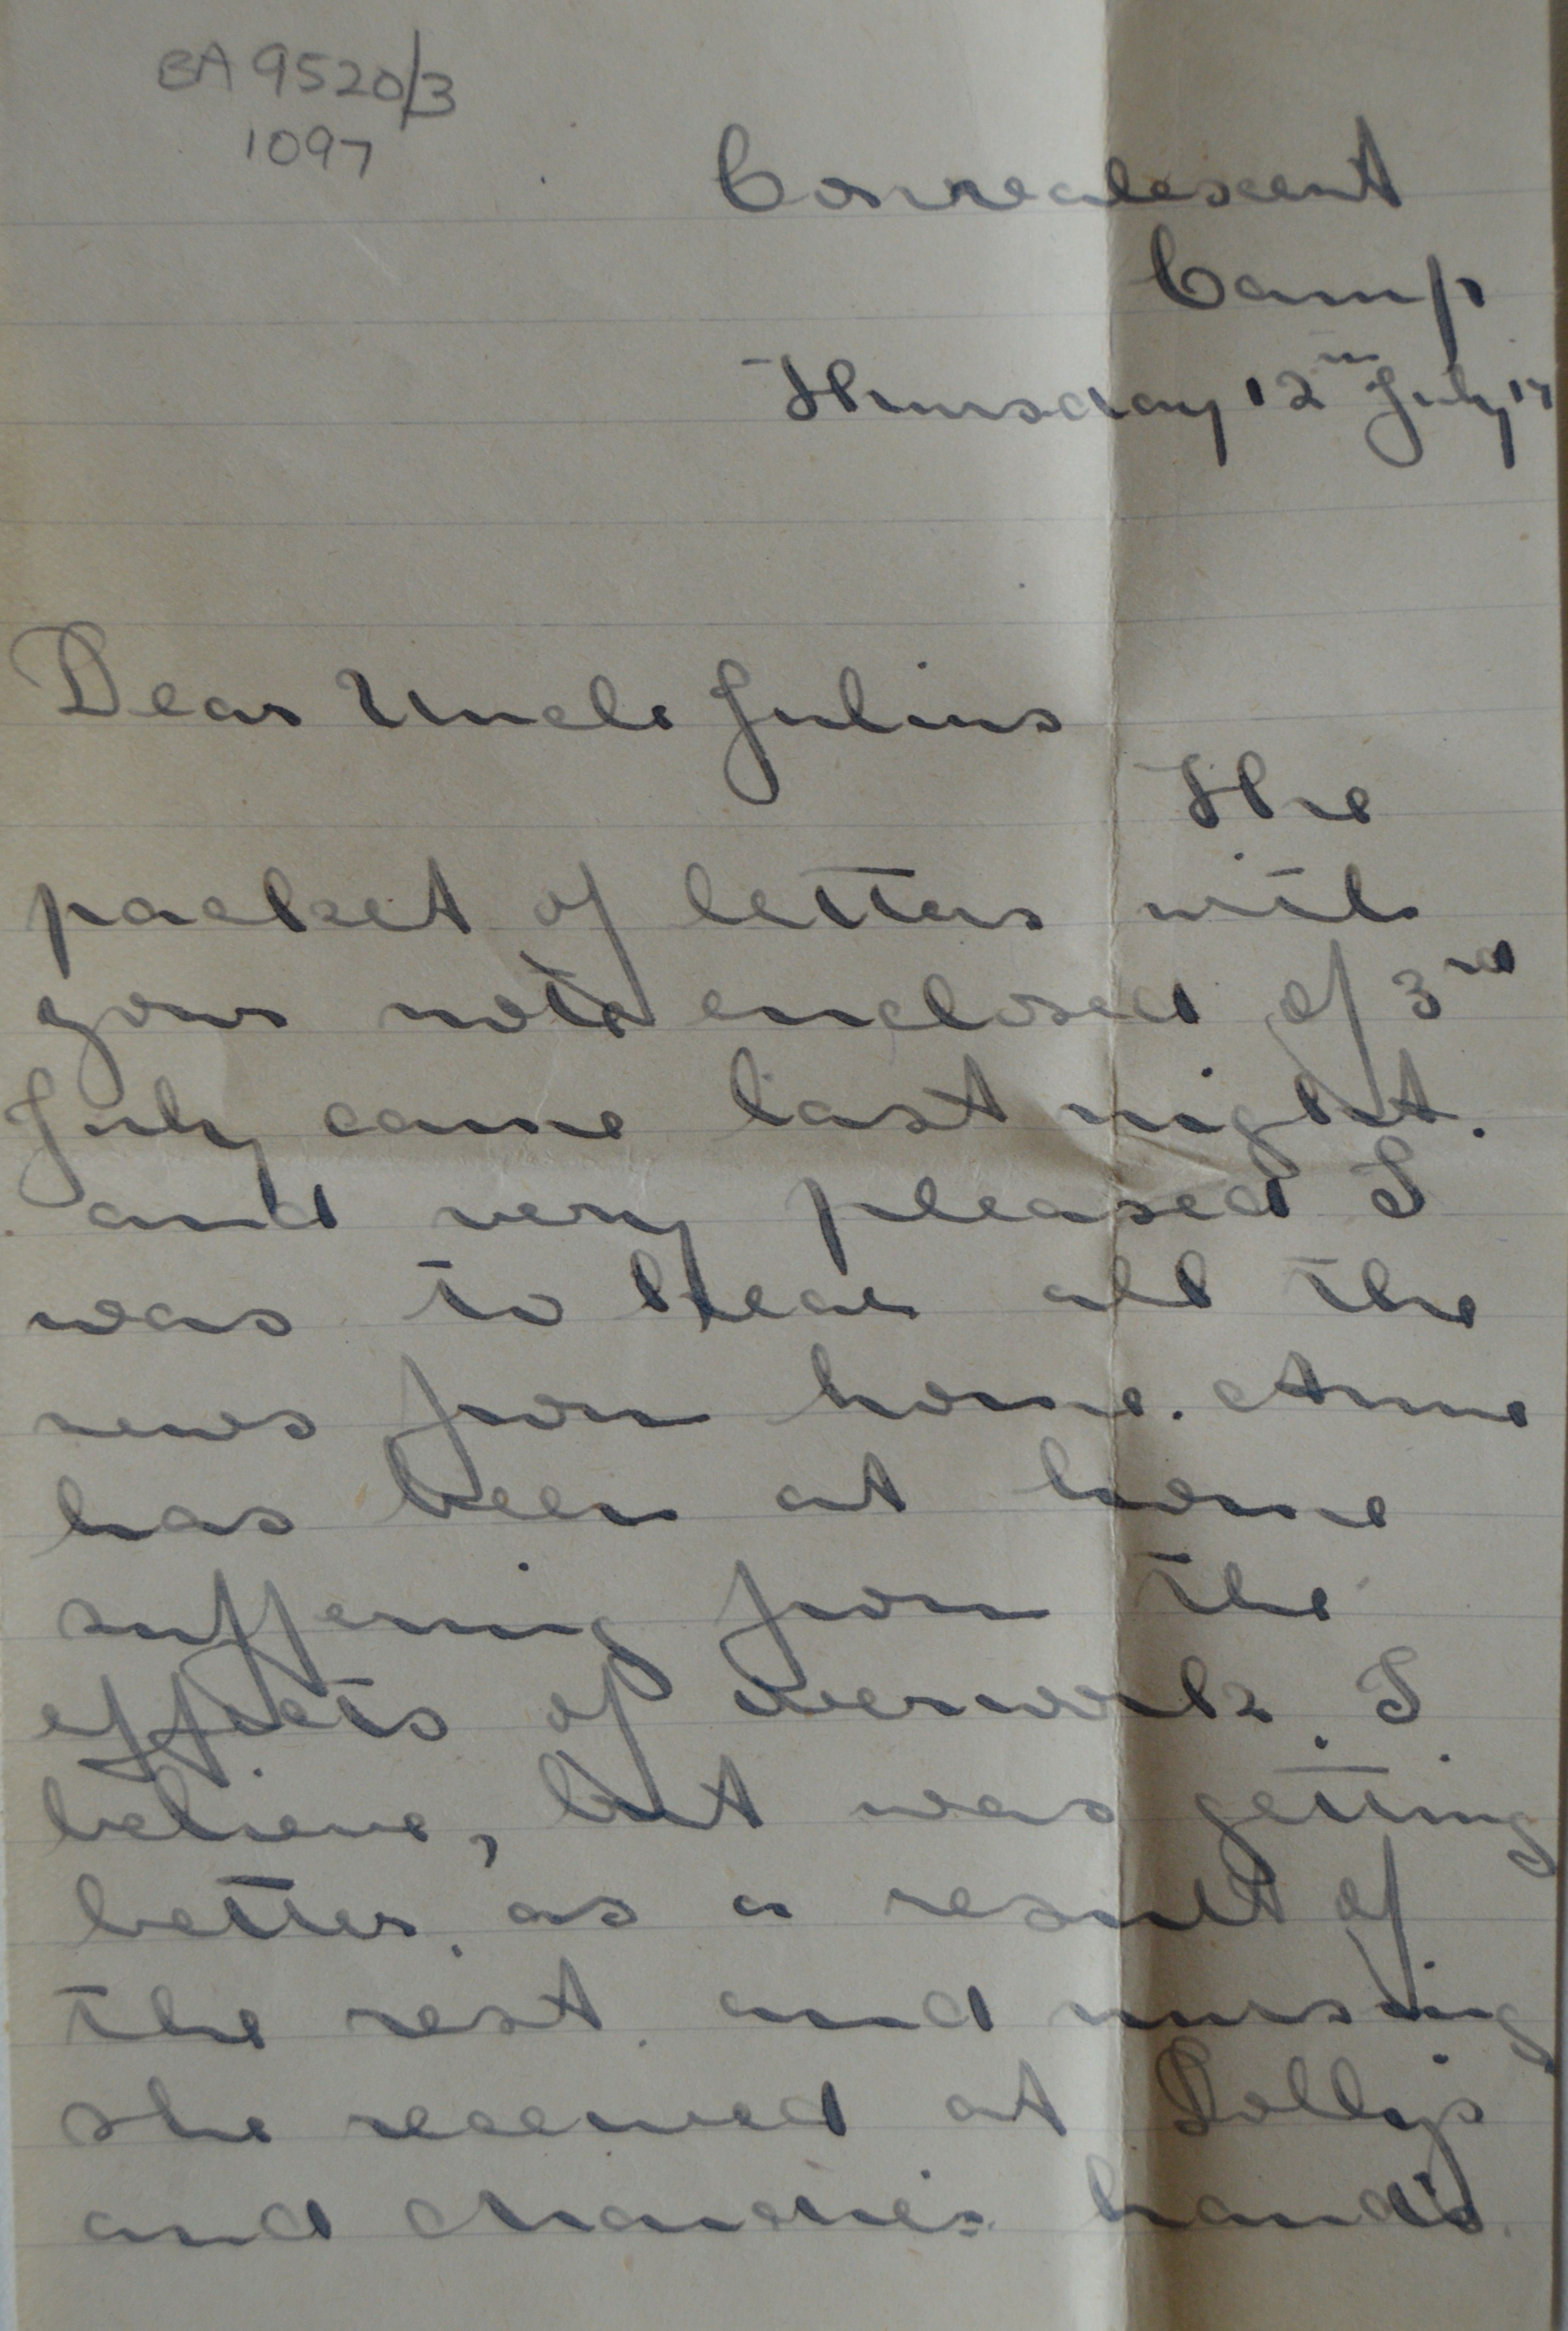 BA 9520/3
1097
Convalescent
Camp
Thursday 12th July 17
Dear Uncle Julius
The
packet of letters with
your note enclosed of 3rd
July came last night.
and very pleased I
was to hear all the
news from home. Anne
has been at home
suffering from the
effects of overwork. I
believe, but was getting
better. as a result of
the rest. and nursing
she received at Dolly's
and hands.